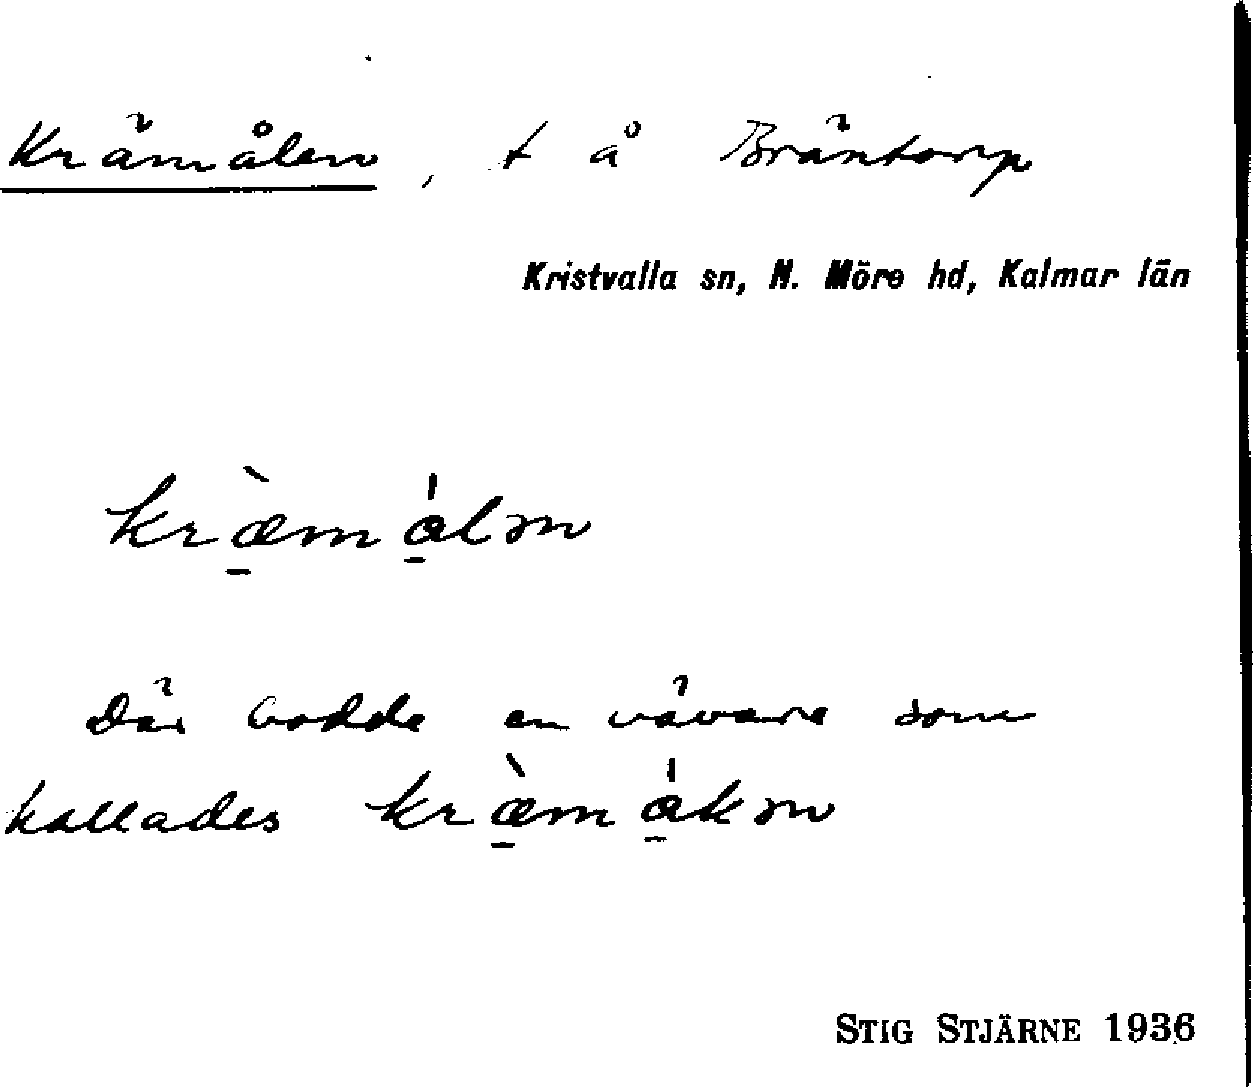 Krämålen, t å Bräntorp
Kristvalla sn, N. Möre hd, Kalmar län
kræ̀målən
Där bodde en vävare som
kallades kræ̀måkən
STIG STJÄRNE 1936